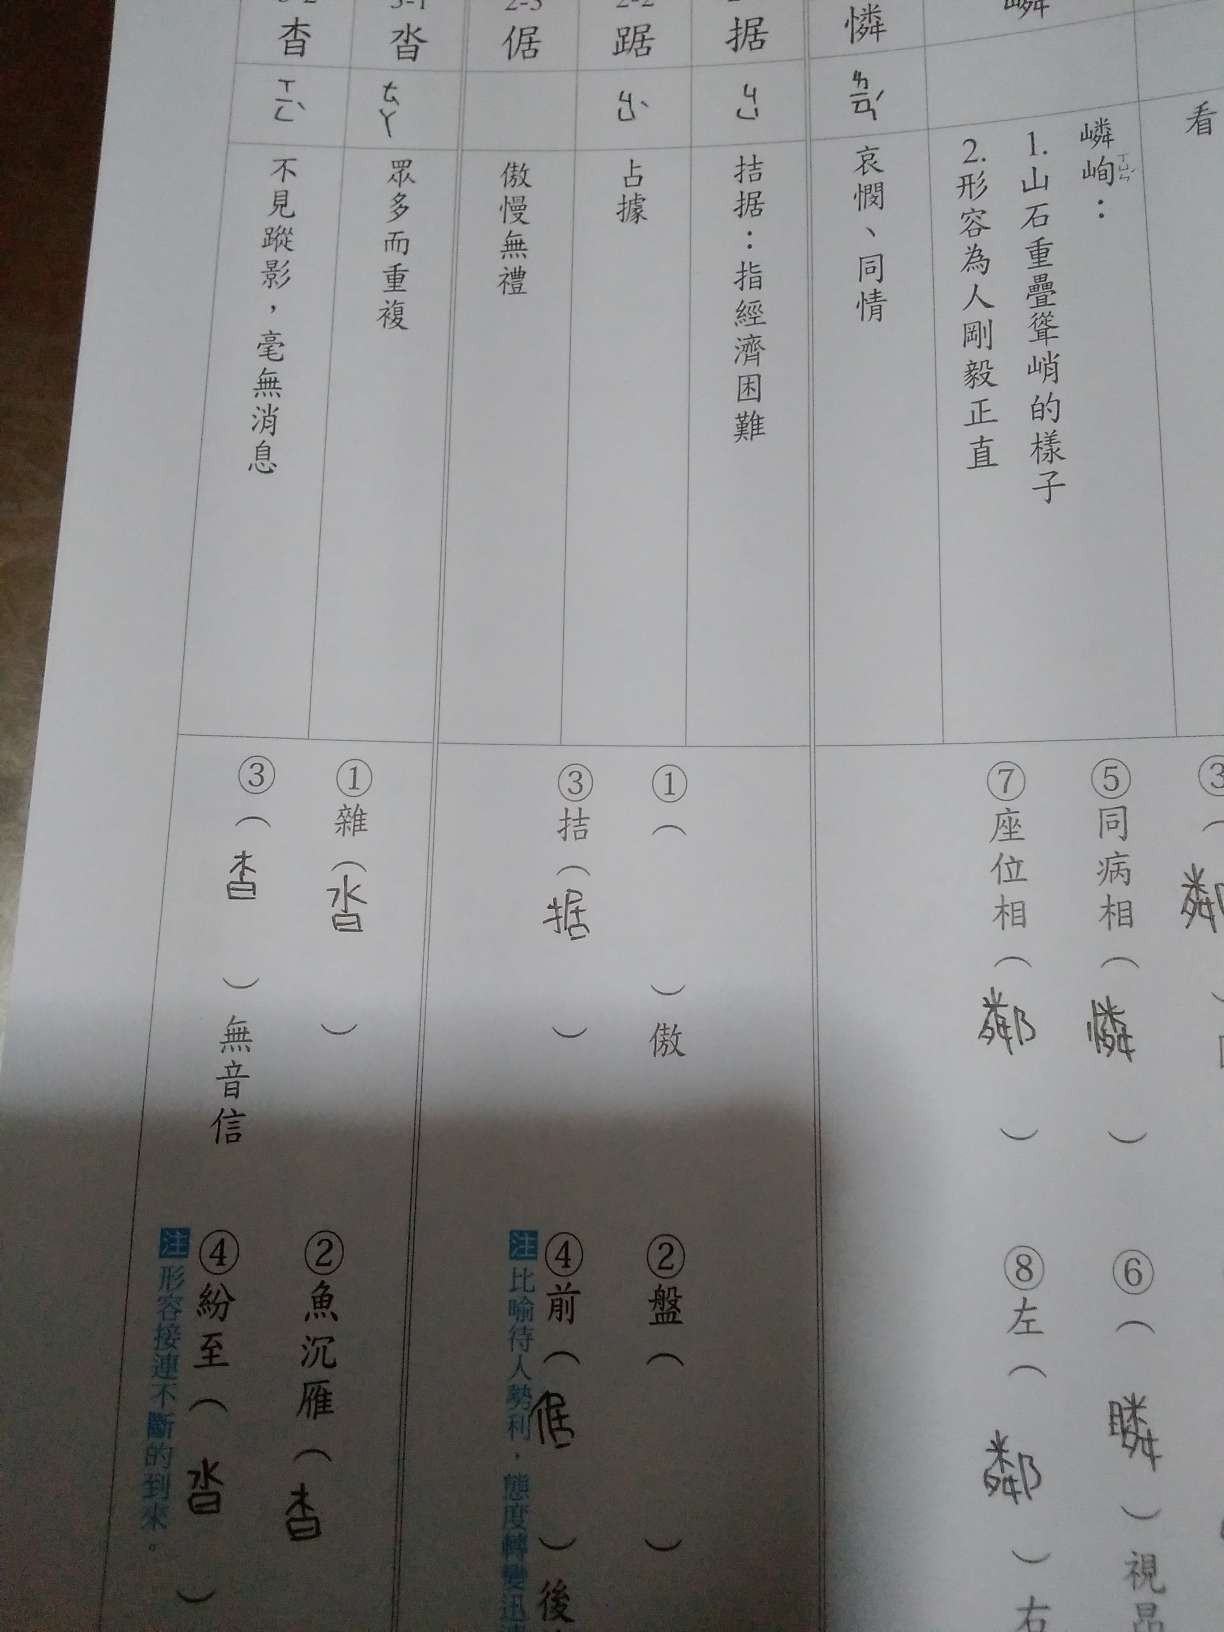 看
嶙峋：
ㄒㄩㄣˊ
1.山石重疊聳峭的樣子
2.形容為人剛毅正直
憐
ㄌㄧㄢˊ
哀憫、同情
据
ㄐㄩ
拮据：指經濟困難
2-2
踞
ㄐㄩˋ
占據
2-3
倨
傲慢無禮
3-1
沓
ㄊㄚˋ
眾多而重複
3-2
杳
ㄧㄠˇ
不見蹤影，毫無消息
⑤同病相（憐）
⑥（瞵）視昂
⑦座位相（鄰）
⑧左（鄰）右
①（ ）傲
②盤（ ）
③拮（据）
④前（倨）後
注 比喻待人勢利，態度轉變迅
①雜（沓）
②魚沉雁（杳）
③（杳）無音信
④紛至（沓）
注 形容接連不斷的到來。